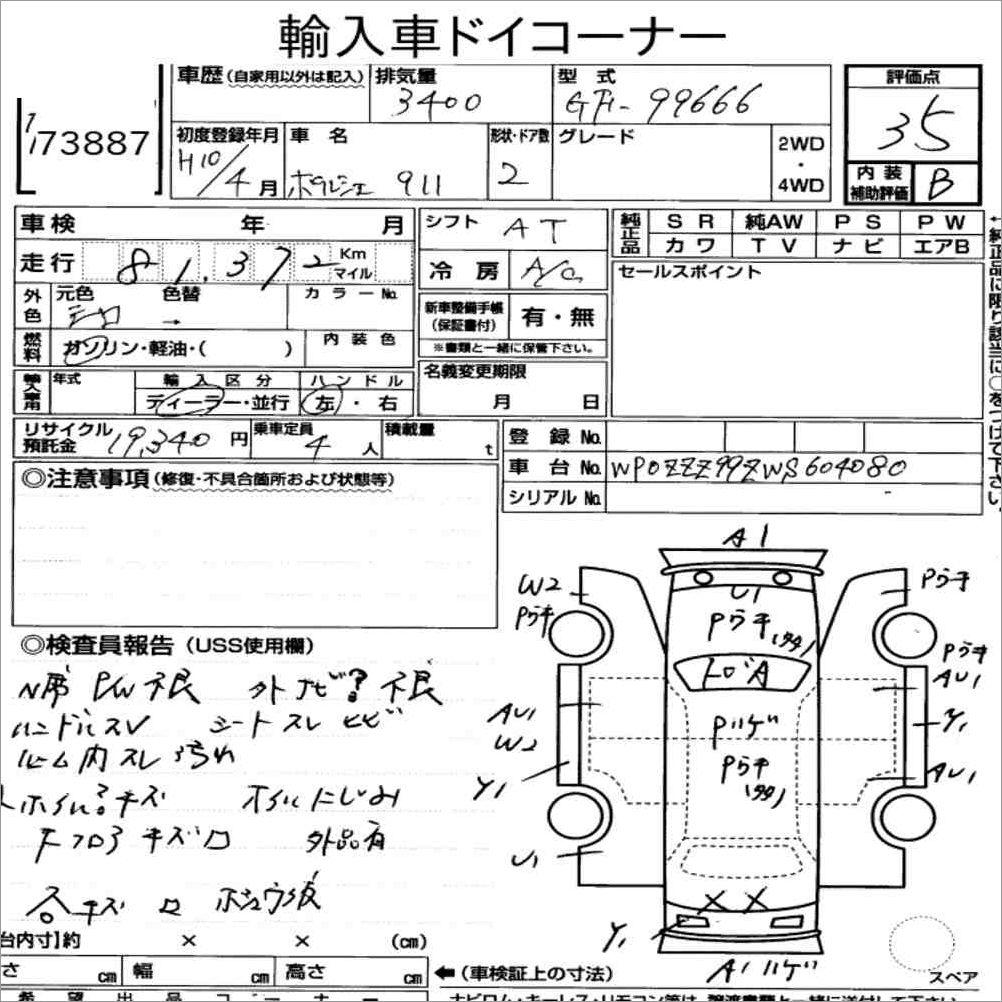 輸入車ドイコーナー
173887
車歴(自家用以外は記入)
排気量
3400
型式
GF-99666
評価点
35
初度登録年月
H10/4月
車名
ポルシェ 911
形状・ドア数
2
グレード
2WD
・
4WD
内装
補助評価
B
車検 年 月
シフト AT
純正品
SR 純AW PS PW
カワ TV ナビ エアB
走行 81,372 Km
マイル
冷房 A/C
セールスポイント
外色
元色 色替 カラーNo.
→
新車整備手帳
(保証書付)
有・無
※書類と一緒に保管下さい。
燃料
ガソリン・軽油・( )
内装色
輸入車用
年式
輸入区分
ディーラー・並行
ハンドル
左・右
名義変更期限
月 日
リサイクル
預託金
19,340円
乗車定員
4人
積載量
t
登録No.
車台No. WP0ZZZ99ZWS604080
シリアルNo.
◎注意事項(修復・不具合箇所および状態等)
◎検査員報告(USS使用欄)
N席 PW不良 外ナビ?不良
ハンドルスレ シートスレヒビ
ルーム内スレ汚れ
キズ ホイルにじみ
下フロア キズ 外品有
キズ
A1
U1
W2
Pウキ
Pウキ
Pウキ
トビA
Pウキ
AU1
AU1
W2
Y1
Pハゲ
Pウキ
Y1
AU1
U1
XX
Y1
A1ハゲ
スペア
台内寸】約 × × (cm)
さ cm 幅 cm 高さ cm
←(車検証上の寸法)
希望出品コーナー
←純正品に限り該当に○をつけて下さい。